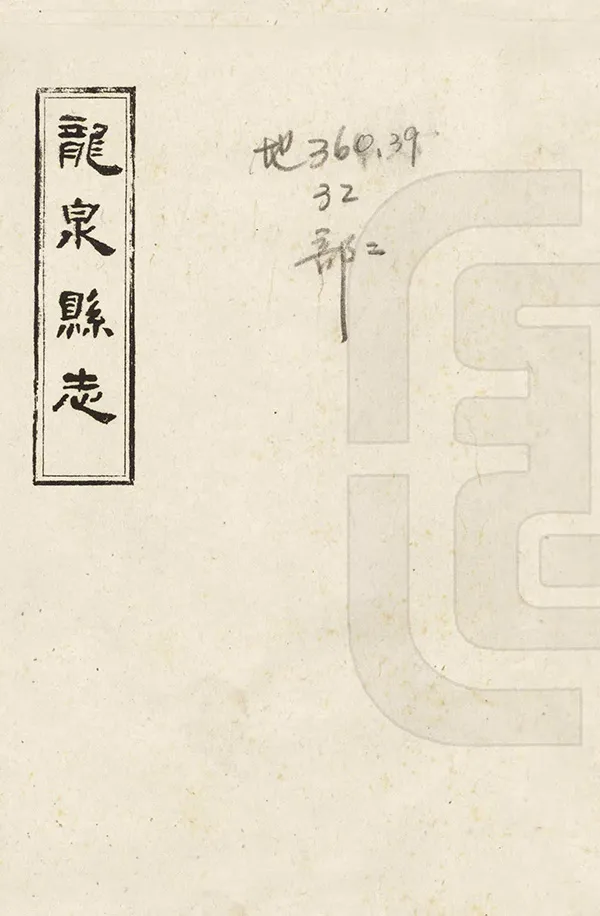 龍泉縣志
地360.39
32
部二